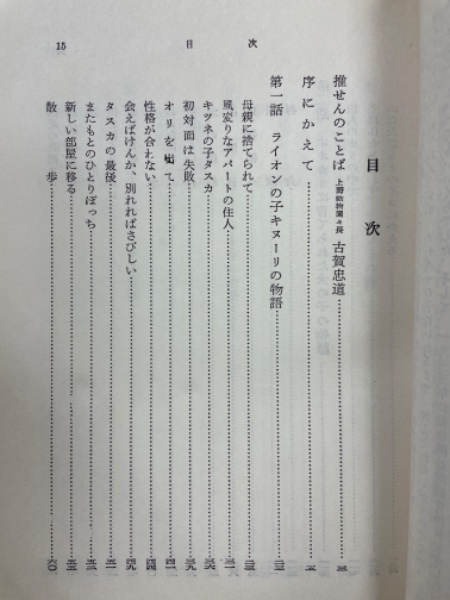 15 目 次
目 次
推せんのことば 上野動物園々長 古賀忠道
序にかえて
第一話 ライオンの子キヌーリの物語
母親に捨てられて
風変りなアパートの住人
キツネの子タスカ
初対面は失敗
オリを嚙て 四一
性格が合わない 四四
会えばけんか、別れればさびしい 四九
タスカの最後
またもとのひとりぼっち
新しい部屋に移る
散 歩 六〇